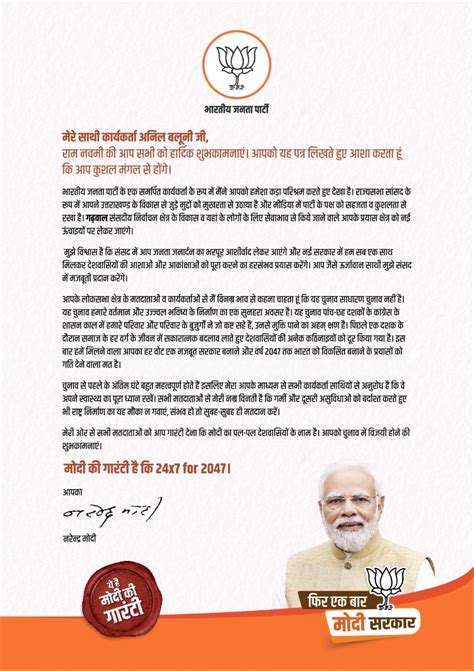 भारतीय जनता पार्टी
मेरे साथी कार्यकर्ता अनिल बलूनी जी,
राम नवमी की आप सभी को हार्दिक शुभकामनाएं। आपको यह पत्र लिखते हुए आशा करता हूं
कि आप कुशल मंगल से होंगे।
भारतीय जनता पार्टी के एक समर्पित कार्यकर्ता के रूप में मैंने आपको हमेशा कड़ा परिश्रम करते हुए देखा है। राज्यसभा सांसद के
रूप में आपने उत्तराखण्ड के विकास से जुड़े मुद्दों को मुखरता से उठाया है और मीडिया में पार्टी के पक्ष को सहजता व कुशलता से
रखा है। गढ़वाल संसदीय निर्वाचन क्षेत्र के विकास व यहां के लोगों के लिए सेवाभाव से किये जाने वाले आपके प्रयास क्षेत्र को नई
ऊंचाइयों पर लेकर जाएंगे।
मुझे विश्वास है कि संसद में आप जनता जनार्दन का भरपूर आशीर्वाद लेकर आएंगे और नई सरकार में हम सब एक साथ
मिलकर देशवासियों की आशाओं और आकांक्षाओं को पूरा करने का हरसंभव प्रयास करेंगे। आप जैसे ऊर्जावान साथी मुझे संसद
में मजबूती प्रदान करेंगे।
आपके लोकसभा क्षेत्र के मतदाताओं व कार्यकर्ताओं से मैं विनम्र भाव से कहना चाहता हूं कि यह चुनाव साधारण चुनाव नहीं है।
यह चुनाव हमारे वर्तमान और उज्ज्वल भविष्य के निर्माण का एक सुनहरा अवसर है। यह चुनाव पांच-छह दशकों के कांग्रेस के
शासन काल में हमारे परिवार और परिवार के बुजुर्गों ने जो कष्ट सहे हैं, उनसे मुक्ति पाने का अहम् क्षण है। पिछले एक दशक के
दौरान समाज के हर वर्ग के जीवन में सकारात्मक बदलाव लाते हुए देशवासियों की अनेक कठिनाइयों को दूर किया गया है। इस
बार हमें मिलने वाला आपका हर वोट एक मजबूत सरकार बनाने और वर्ष 2047 तक भारत को विकसित बनाने के प्रयासों को
गति देने वाला मत है।
चुनाव से पहले के अंतिम घंटे बहुत महत्वपूर्ण होते हैं इसलिए मेरा आपके माध्यम से सभी कार्यकर्ता साथियों से अनुरोध है कि वे
अपने स्वास्थ्य का पूरा ध्यान रखें। सभी मतदाताओं से मेरी नम्र विनती है कि गर्मी और दूसरी असुविधाओं को बर्दाश्त करते हुए
भी राष्ट्र निर्माण का यह मौका न गवाएं, संभव हो तो सुबह-सुबह ही मतदान करें।
मेरी ओर से सभी मतदाताओं को आप गारंटी देना कि मोदी का पल-पल देशवासियों के नाम है। आपको चुनाव में विजयी होने की
शुभकामनाएं।
मोदी की गारंटी है कि 24x7 for 2047।
आपका
नरेन्द्र मोदी
नरेन्द्र मोदी
ये है
मोदी की
गारंटी
फिर एक बार
मोदी सरकार